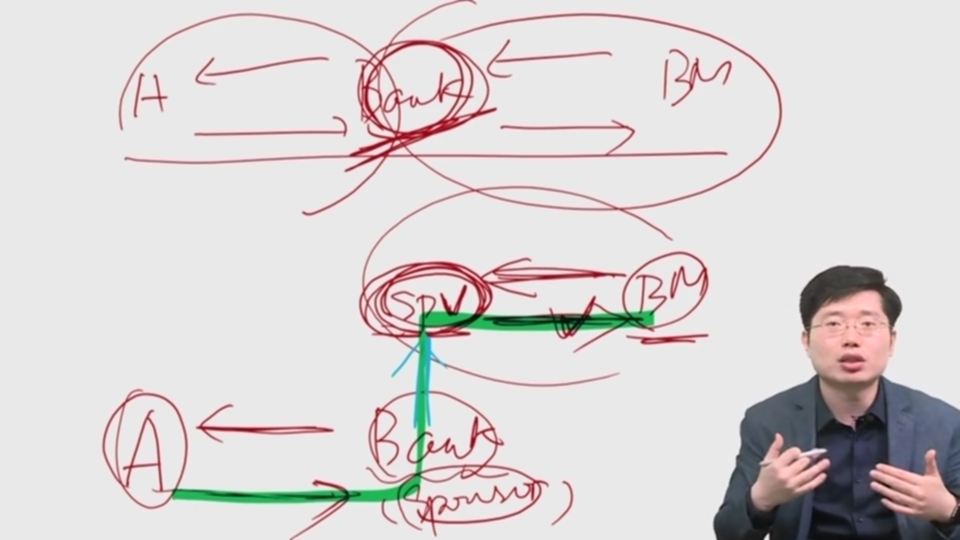 A Bank BM
SPV BM
A Bank
(Sponsor)